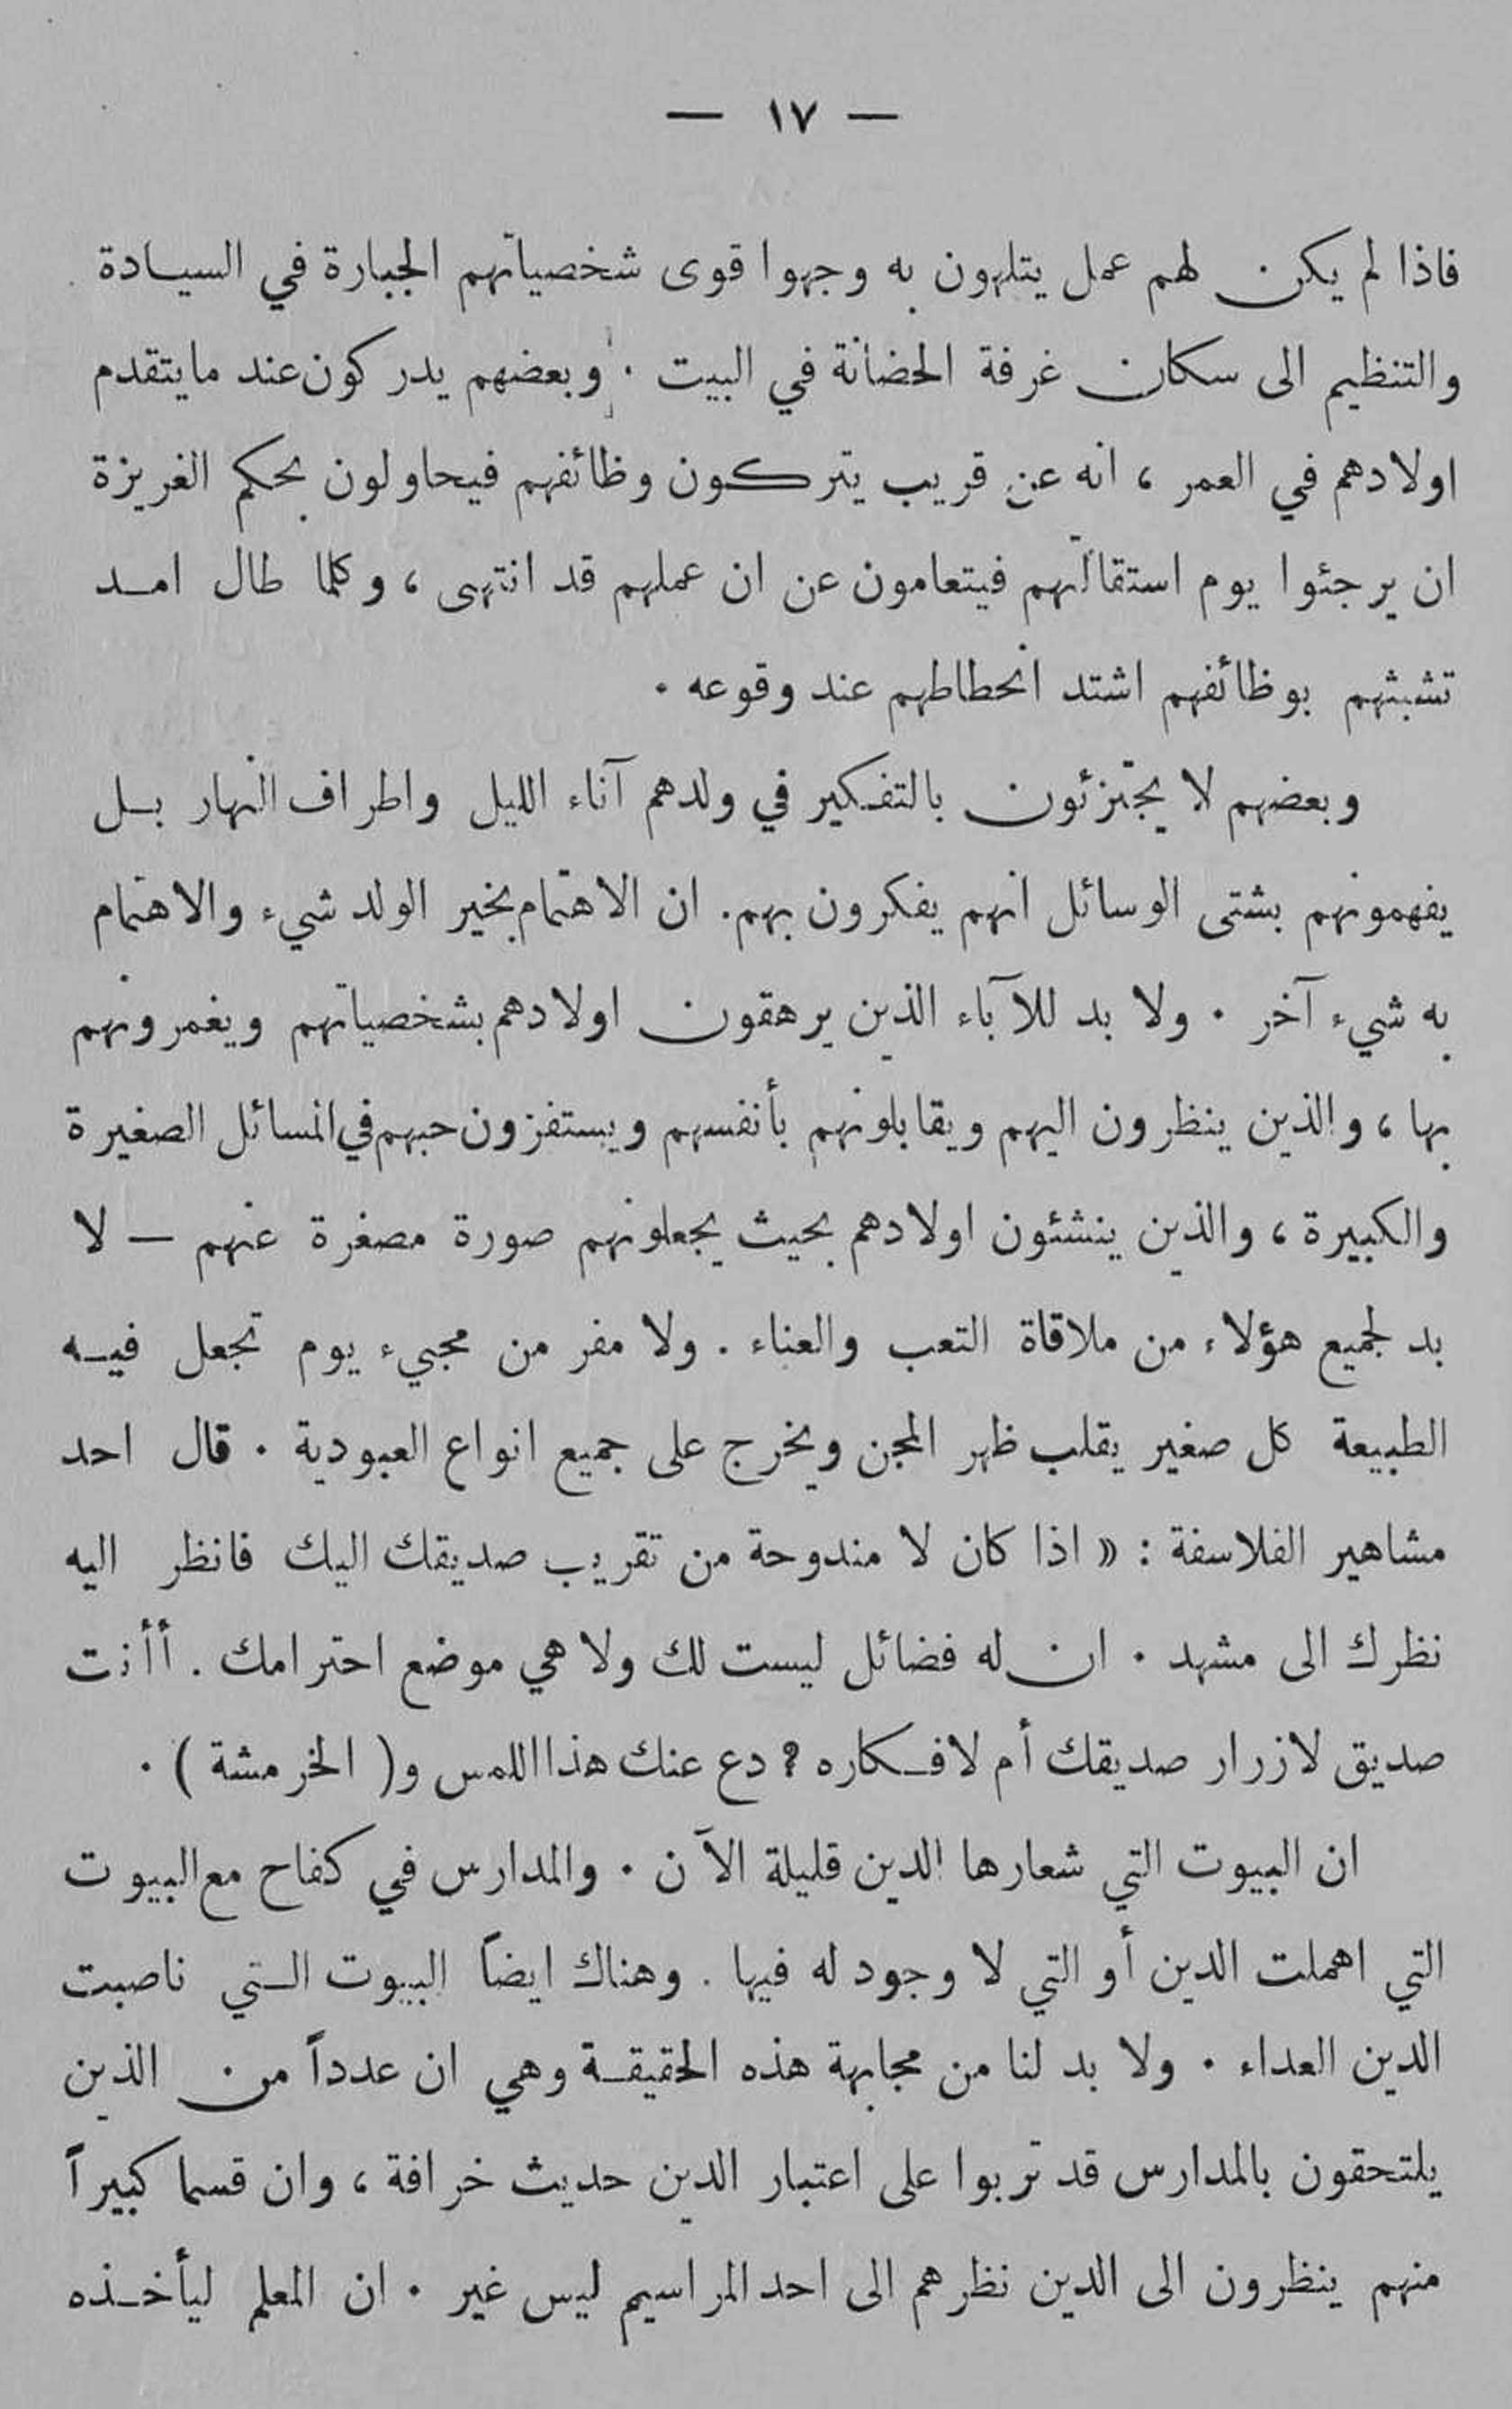 — ١٧ —
فاذا لم يكن لهم عمل يتلهون به وجهوا قوى شخصياتهم الجبارة في السيادة
والتنظيم الى سكان غرفة الحضانة في البيت . وبعضهم يدركون عند ما يتقدم
اولادهم في العمر ، انه عن قريب يتركون وظائفهم فيحاولون بحكم الغريزة
ان يرجئوا يوم استقالتهم فيتعامون عن ان عملهم قد انتهى ، وكلما طال امد
تشبثهم بوظائفهم اشتد انحطاطهم عند وقوعه .
وبعضهم لا يجتزئون بالتفكير في ولدهم آناء الليل واطراف النهار بل
يفهمونهم بشتى الوسائل انهم يفكرون بهم. ان الاهتمام بخير الولد شيء والاهتمام
به شيء آخر . ولا بد للآباء الذين يرهقون اولادهم بشخصياتهم ويغمرونهم
بها ، والذين ينظرون اليهم ويقابلونهم بأنفسهم ويستفزون حبهم في المسائل الصغيرة
والكبيرة ، والذين ينشئون اولادهم بحيث يجعلونهم صورة مصغرة عنهم — لا
بد لجميع هؤلاء من ملاقاة التعب والعناء . ولا مفر من مجيء يوم تجعل فيه
الطبيعة كل صغير يقلب ظهر المجن ويخرج على جميع انواع العبودية . قال احد
مشاهير الفلاسفة : « اذا كان لا مندوحة من تقريب صديقك اليك فانظر اليه
نظرك الى مشهد . ان له فضائل ليست لك ولا هي موضع احترامك . أأنت
صديق لازرار صديقك أم لافكاره ؟ دع عنك هذا اللمس و( الخرمشة ) .
ان البيوت التي شعارها الدين قليلة الآن . والمدارس في كفاح مع البيوت
التي اهملت الدين أو التي لا وجود له فيها . وهناك ايضاً البيوت التي ناصبت
الدين العداء . ولا بد لنا من مجابهة هذه الحقيقة وهي ان عدداً من الذين
يلتحقون بالمدارس قد تربوا على اعتبار الدين حديث خرافة ، وان قسما كبيراً
منهم ينظرون الى الدين نظرهم الى احد المراسيم ليس غير . ان المعلم ليأخذه